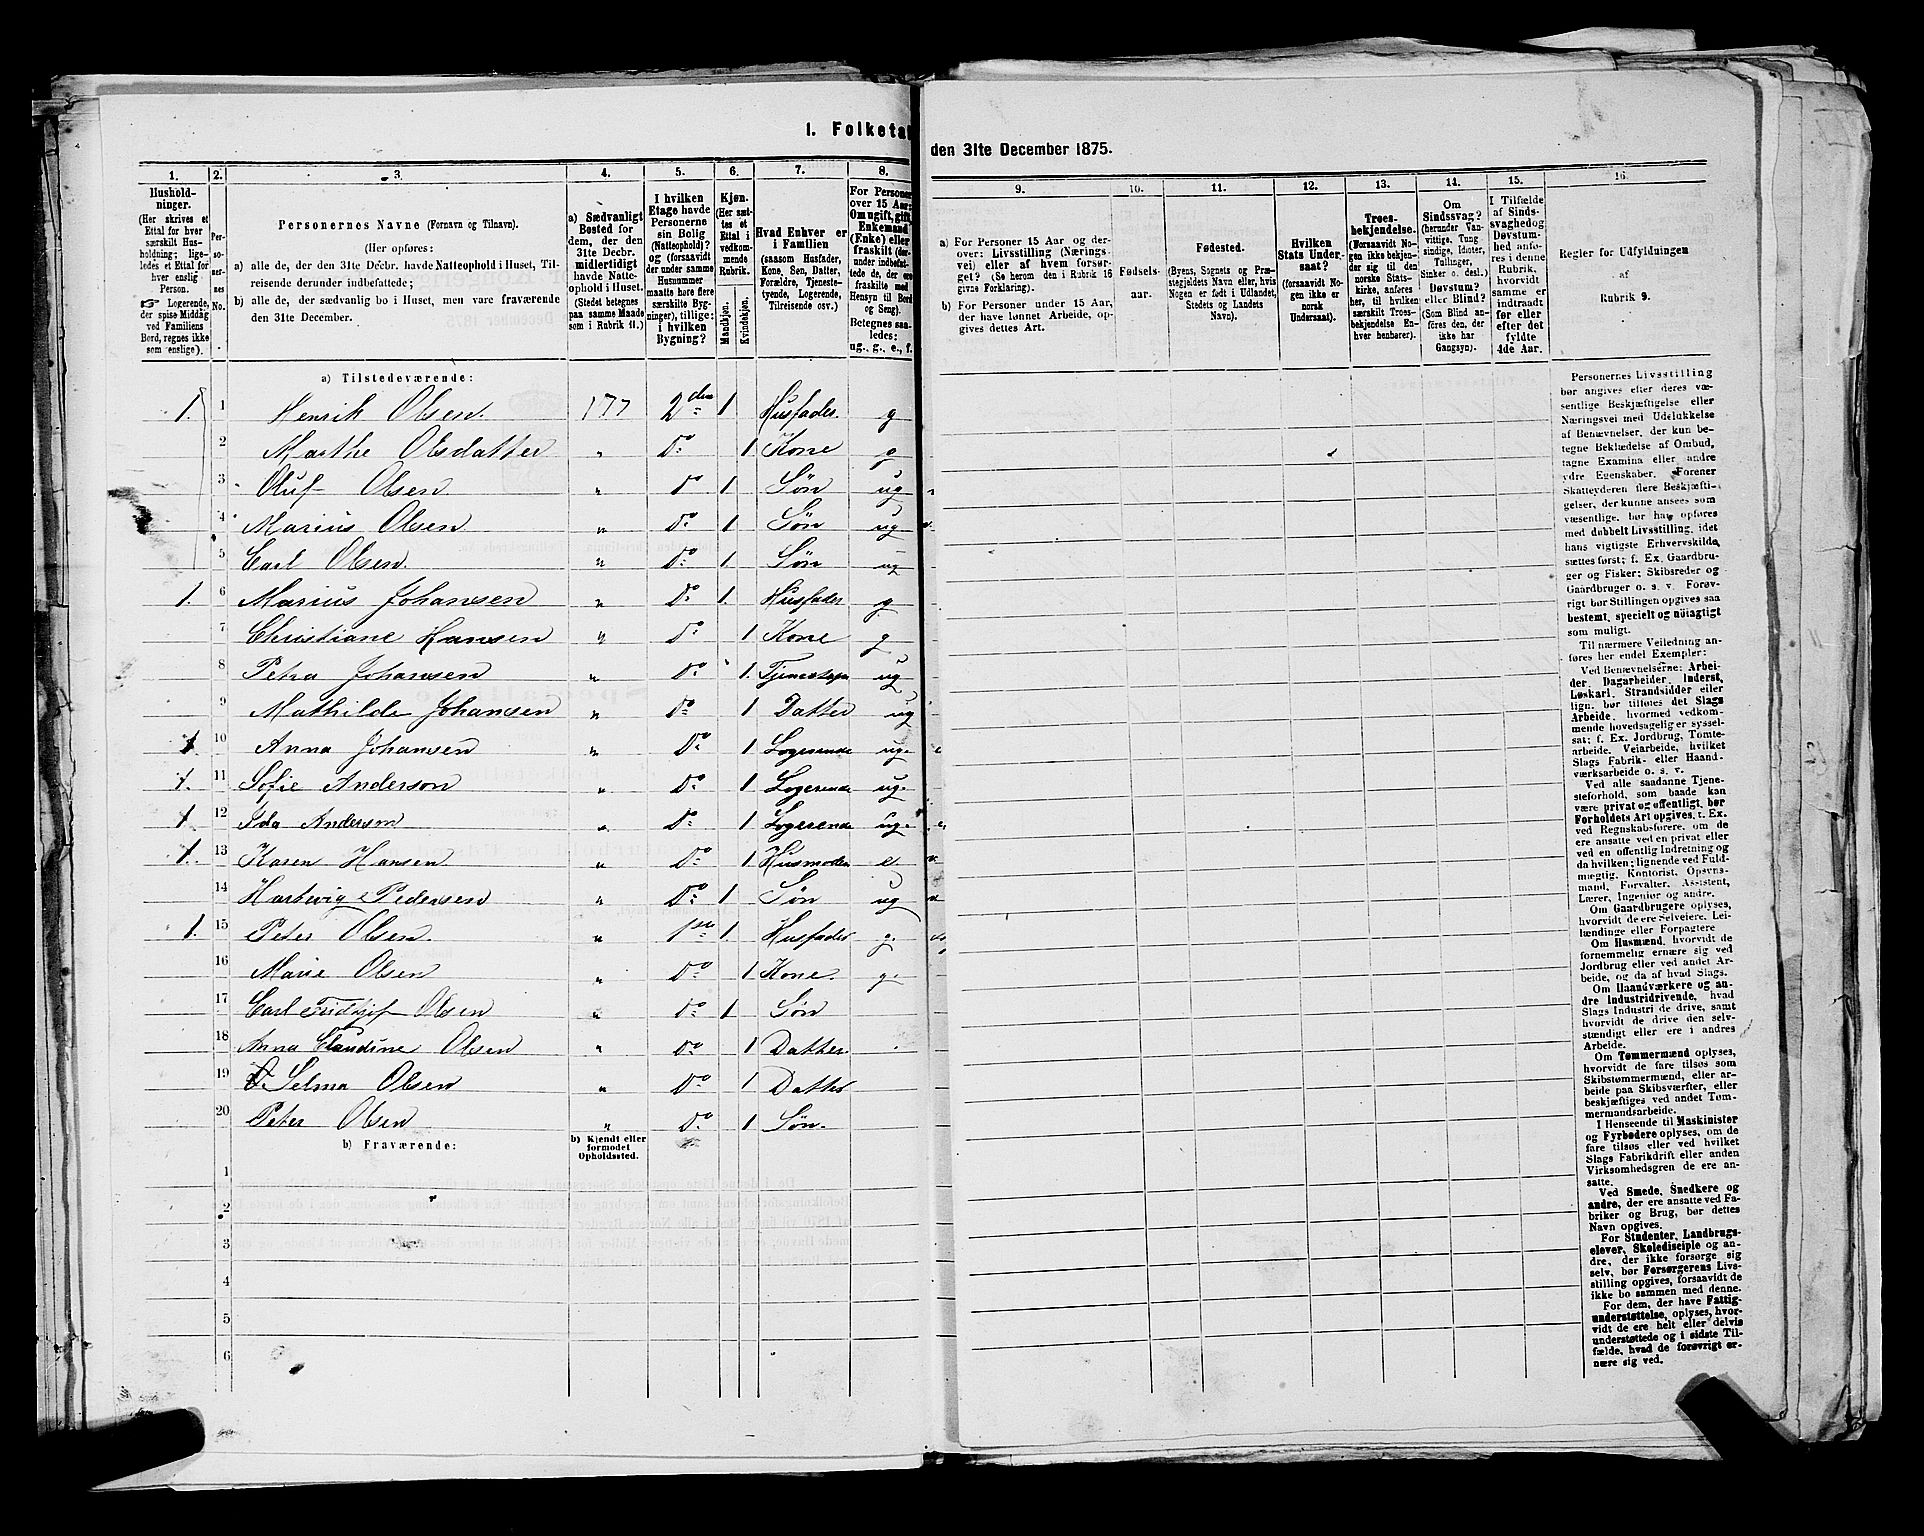 1. Folketal
den 31te December 1875.
1. 2. 3. 4. 5. 6. 7. 8.
Hushold-
ninger.
(Her skrives et
Ettal for hver
særskilt Hus-
holdning; lige-
ledes et Ettal for
hver enslig
Person.
☞ Logerende,
der spise Middag
ved Familiens
Bord, regnes ikke
som enslige).
Per-
soner-
nes
No.
Personernes Navne (Fornavn og Tilnavn).
(Her opføres:
a) alle de, der den 31te Decbr. havde Natteophold i Huset, Til-
reisende derunder indbefattede;
b) alle de, der sædvanlig bo i Huset, men vare fraværende
den 31te December.
a) Sædvanligt
Bosted for
dem, der den
31te Decbr.
midlertidigt
havde Natte-
ophold i Huset.
(Stedet betegnes
paa samme Maade
som i Rubrik 11.)
I hvilken
Etage havde
Personerne
sin Bolig
(Natteophold)?
og (forsaavidt
der under samme
Husnummer
maatte høre flere
særskilte Byg-
ninger), tillige:
i hvilken
Bygning?
Kjøn.
(Her sæt-
tes et
Ettal i
vedkom-
mende
Rubrik.
Mandkjøn.
Kvindekjøn.
Hvad Enhver er
i Familien
(saasom Husfader,
Kone, Søn, Datter,
Forældre, Tjeneste-
tyende, Logerende,
Tilreisende osv.)
For Personer
over 15 Aar:
Om ugift, gift,
Enkemand
(Enke) eller
fraskilt (der-
under indbefat-
tede de, der ere
fraskilte med
Hensyn til Bord
og Seng).
Betegnes saa-
ledes:
ug., g., e., f.
a) Tilstedeværende:
1. 1 Henrik Olsen. 177 2den 1 Husfader. g
2 Marthe Olsdatter " Do 1 Kone g
3 Oluf Olsen " Do 1 Søn ug
4 Marius Olsen " Do 1 Søn ug
5 Carl Olsen. " Do 1 Søn ug
1. 6 Marius Johansen " Do 1. Husfader g.
7 Christiane Hansen " Do 1 Kone g
8 Petra Johansen " Do 1. ug
9 Mathilde Johansen " Do 1 Datter ug
1 10 Anna Johansen " Do 1 Logerende ug.
1. 11 Sofie Anderson " Do 1 Logerende ug.
1 12 Ida Anderson " Do 1 Logerende ug.
1. 13 Karen Hansen " Do 1 Husmoder e
14 Hartvig Pedersen " Do 1 Søn ug
1. 15 Peter Olsen. " 1ste 1. Husfader g.
16 Marie Olsen " Do 1 Kone. g.
17 Carl Olsen " Do 1 Søn
18 Anna Claudine Olsen " Do 1 Datter.
19 Selma Olsen " Do 1 Datter
20 Peter Olsen " Do 1 Søn.
b) Fraværende:
b) Kjendt eller
formodet
Opholdssted.
1
2
3
4
5
6
9. 10. 11. 12. 13. 14. 15. 16.
a) For Personer 15 Aar og der-
over: Livsstilling (Nærings-
vei) eller af hvem forsør-
get? (Se herom den i Rubrik 16
givne Forklaring).
b) For Personer under 15 Aar,
der have lønnet Arbeide, op-
gives dettes Art.
Fødsels-
aar.
Fødested.
(Byens, Sognets og Præ-
stegjeldets Navn eller, hvis
Nogen er født i Udlandet,
Stedets og Landets
Navn).
Hvilken
Stats Under-
saat?
(forsaavidt No-
gen ikke er
norsk
Undersaat).
Troes-
bekjendelse.
(Forsaavidt No-
gen ikke bekjen-
der sig til den
norske Stats-
kirke, anføres
her, til hvilken
særskilt Troes-
bekjendelse En-
hver henhører).
Om
Sindssvag?
(herunder Van-
vittige, Tung
sindige, Idioter,
Tullinger,
Sinker o. desl.)
Døvstum?
eller Blind?
(Som Blind an-
føres den, der
ikke har
Gangsyn).
I Tilfælde
af Sinds-
svaghed og
Døvstum-
hed anfø-
res i denne
Rubrik,
hvorvidt
samme er
indtraadt
før eller
efter det
fyldte
4de Aar.
Regler for Udfyldningen
af
Rubrik 9.
Personernes Livsstilling
bør angives efter deres væ-
sentlige Beskjæftigelse eller
Næringsvei med Udelukkelse
af Benævnelser, der kun be-
tegne Beklædelse af Ombud,
tagne Examina eller andre
ydre Egenskaber. Forener
Skatteyderen flere Beskjæfti-
gelser, der kunne ansees som
væsentlige, bør han opføres
med dobbelt Livsstilling, idet
hans vigtigste Erhvervskilde
sættes først; f. Ex. Gaardbru-
ger og Fisker; Skibsreder og
Gaardbruger o. s. v. Forøv-
rigt bør Stillingen opgives saa
bestemt, specielt og nøiagtigt
som muligt.
Til nærmere Veiledning an-
føres her endel Exempler:
Ved Benævnelserne: Arbei-
der, Dagarbeider, Inderst,
Løskarl, Strandsidder eller
lign. bør tilføies det Slags
Arbeide, hvormed vedkom-
mende hovedsagelig er syssel-
sat; f. Ex. Jordbrug, Tomte-
arbeide, Veiarbeide, hvilket
Slags Fabrik- eller Haand-
værksarbeide o. s. v.
Ved alle saadanne Tjene-
steforhold, som baade kan
være privat og offentligt, bør
Forholdets Art opgives, t. Ex.
ved Regnskabsførere, om de
ere ansatte ved en privat eller
ved en offentlig Indretning og
da hvilken; lignende ved Fuld-
mægtig, Kontorist, Opsyns-
mand, Forvalter, Assistent,
Lærer, Ingeniør og andre.
Om Gaardbrugere oplyses,
hvorvidt de ere Selveiere, Lei-
lændinge eller Forpagtere
Om Husmænd, hvorvidt de
fornemmelig ernære sig ved
Jordbrug eller ved andet Ar-
beide, og da af hvad Slags.
Om Haandværkere og an-
dre Industridrivende, hvad
Slags Industri de drive, samt
hvorvidt de drive den selv-
stændigt eller ere i andres
Arbeide.
Om Tømmermænd oplyses,
hvorvidt de fare tilsøs som
Skibstømmermænd, eller ar-
beide paa Skibsværfter, eller
beskjæftiges ved andet Tøm-
mermandsarbeide.
I Henseende til Maskinister
og Fyrbødere oplyses, om de
fare tilsøs eller ved hvilket
Slags Fabrikdrift eller anden
Virksomhedsgren de ere an-
satte.
Ved Smede, Snedkere og
andre, der ere ansatte ved Fa-
briker og Brug, bør dettes
Navn opgives.
For Studenter, Landbrugs-
elever, Skoledisciple og an-
dre, der ikke forsørge sig
selv, bør Forsørgerens Livs-
stilling opgives, forsaavidt de
ikke bo sammen med denne.
For dem, der have Fattig-
understøttelse, oplyses, hvor-
vidt de ere helt eller delvis
understøttede og i sidste Til-
fælde, hvad de forøvrigt er-
nære sig ved.